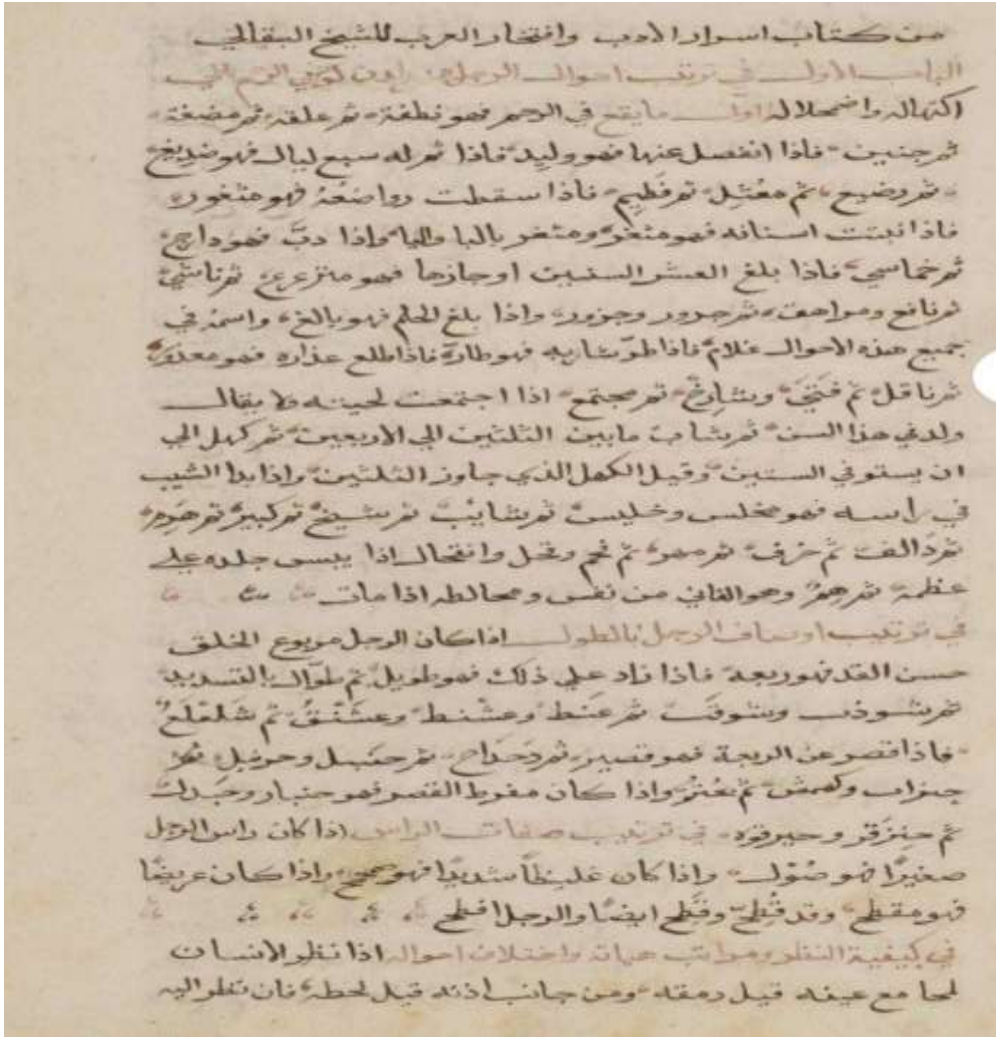 من كتاب اسرار الادب وافتخار العرب للشيخ البقالي
الباب الاول في ترتيب احوال الرجل من لدن كونه في الرحم الي
اكتهاله واضمحلاله اول ما يقع في الرحم فهو نطفة ثم علقه ثم مضغة
ثم جنين فاذا انفصل عنها فهو وليد فاذا تم له سبع ليال فهو صديغ
ثم رضيع ثم ثم فطيم فاذا سقطت رواضعه فهو مثغور
فاذا نبتت اسنانه فهو مثغر ومتغر بالبا والها واذا دب فهو دارج
ثم خماسي فاذا بلغ العشر السنين او جازها فهو مترعرع ثم ناشي
ثم نافع ومراهق ثم حرور وجزور واذا بلغ الحلم فهو بالغ واسمه في
جميع هذه الاحوال غلام فاذا طر شاربه فهو طار فاذا طلع عذاره فهو معذر
ثم ناقل ثم فتي وشارخ ثم مجتمع اذا اجتمعت لحيته ولا يقال
ولد في هذا السن ثم شاب ما بين الثلثين الي الاربعين ثم كهل الي
ان يستوفي الستين وقيل الكهل الذي جاوز الثلثين واذا بدا الشيب
في راسه فهو مخلس وخليس ثم شايب ثم شيخ ثم كبير ثم هرم
ثم دالف ثم خرف ثم ثم وقحل وانقحال اذا يبس جلده علي
عظمه ثم هم وهو الفاني من نفس اذا مات
في ترتيب اوصاف الرجل بالطول اذا كان الرجل مربوع الخلق
حسن القد فهو ربعة فاذا زاد علي ذلك فهو طويل ثم طوال بالتشديد
ثم شوذب وشوقب ثم عنط وعشنط وعشنق ثم شلعلع
فاذا قصر عن الربعة فهو قصير ثم دحداح ثم حنبل وحزنبل ثم
جنزاب وكهمش ثم بحتر واذا كان مفرط القصر فهو حنبار وحبدل
ثم حنزقر وحيرقوه في ترتيب صفات الراس اذا كان راس الرجل
صغيرا فهو صؤل واذا كان غليظا شديدا فهو واذا كان عريضا
فهو مفطح وقد فُطِح وفَطِح ايضا والرجل افطح
في كيفية النظر ومراتب هيئاته واختلاف احواله اذا نظر الانسان
لمحا مع عينه قيل رمقه ومن جانب اذنه قيل لحظه فان نظر اليه